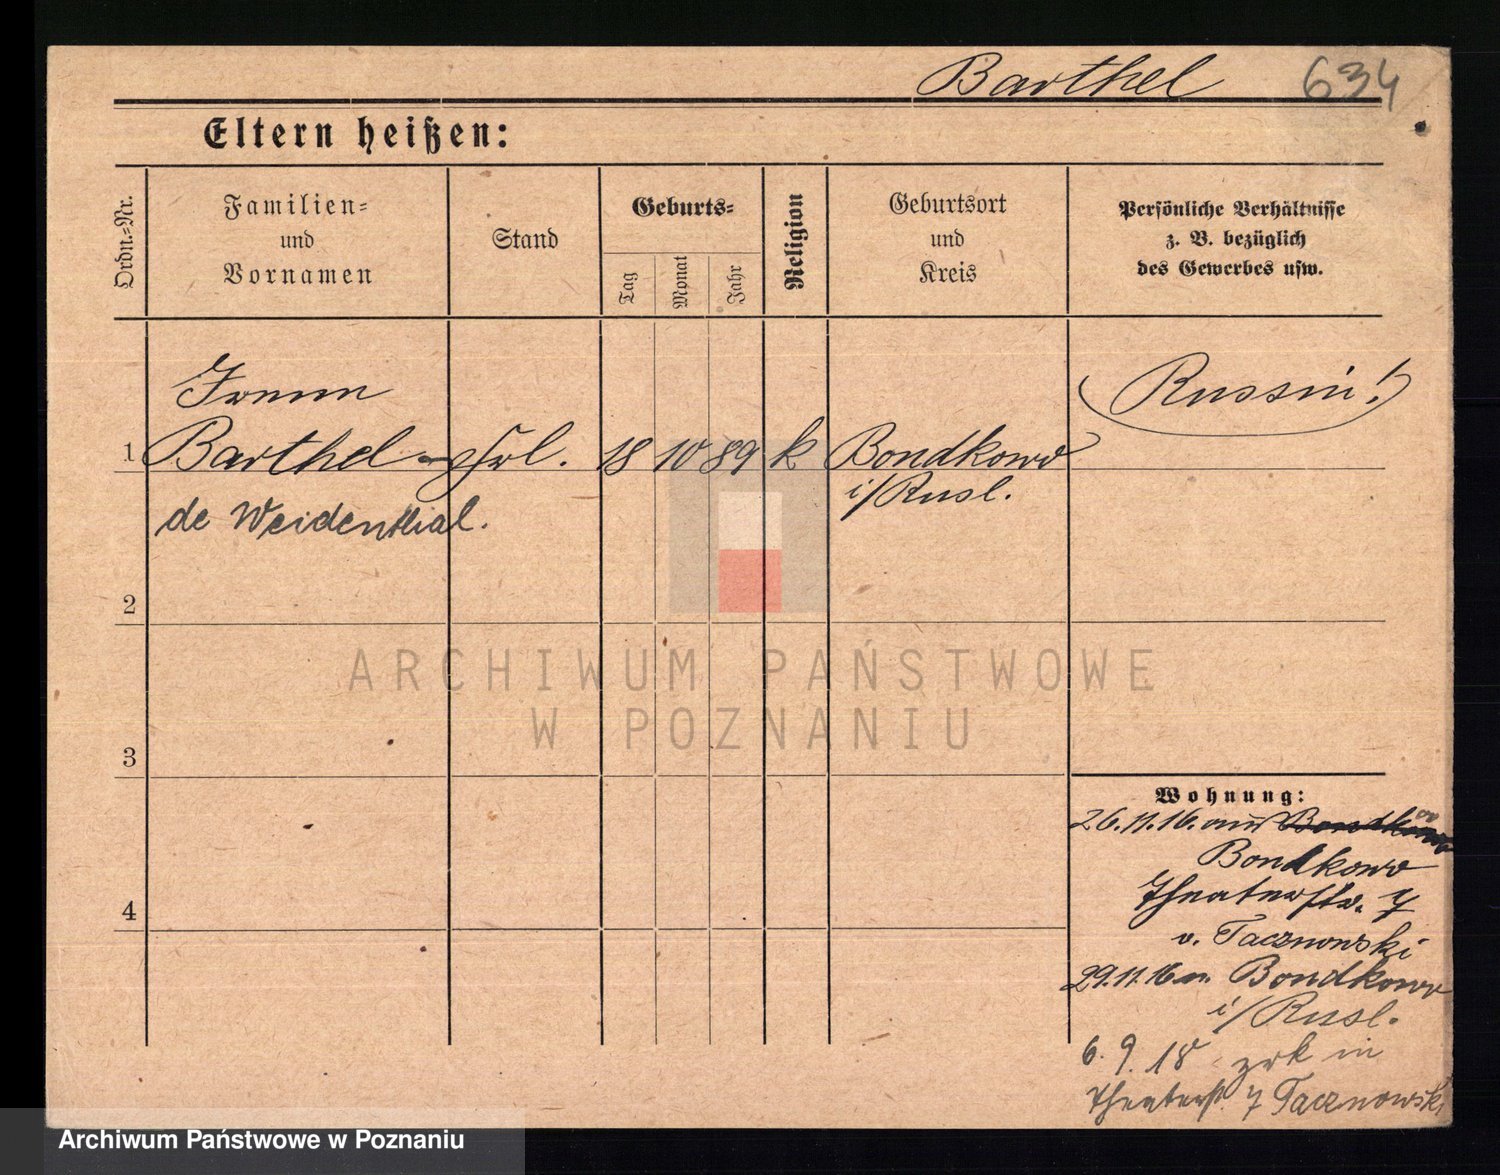 Barthel 634
Eltern heißen:
Ordn.-Nr.
Familien-
und
Vornamen
Stand
Geburts-
Tag
Monat
Jahr
Religion
Geburtsort
und
Kreis
Persönliche Verhältnisse
z. B. bezüglich
des Gewerbes usw.
(Russin!)
1 Barthel Frl. 18 10 89 k Bondkowo
i/Rusl.
de Weidenthal.
2
3
4
Wohnung:
26.11.16. aus Bondkowo
Bondkowo
Theaterstr. 7
v. Tacznowski
29.11.16 n. Bondkowo
i/Rusl.
6.9.18 zrk in
Theaterstr. 7 Tacznowski
ARCHIWUM PAŃSTWOWE
W POZNANIU
Archiwum Państwowe w Poznaniu